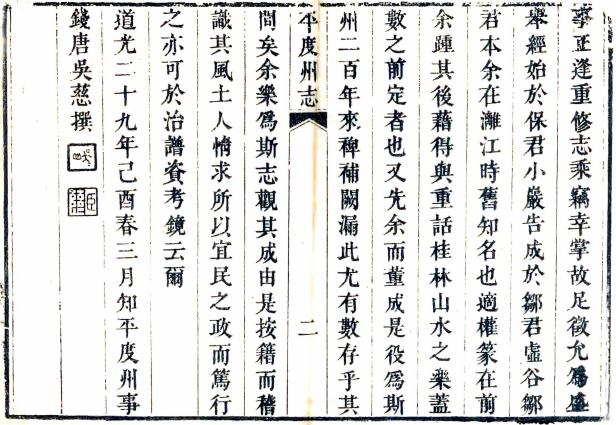 事正逢重修志乘竊幸掌故足徵允爲盛
舉經始於保君小嚴告成於鄒君虛谷鄒
君本余在灕江時舊知名也適權篆在前
余踵其後藉得與重話桂林山水之樂蓋
數之前定者也又先余而董成是役爲斯
州二百年來稗補闕漏此尤有數存乎其
平度州志
二
間矣余樂爲斯志觀其成由是按籍而稽
識其風土人情求所以宜民之政而篤行
之亦可於治譜資考鏡云爾
道光二十九年己酉春三月知平度州事
錢唐吳慈撰